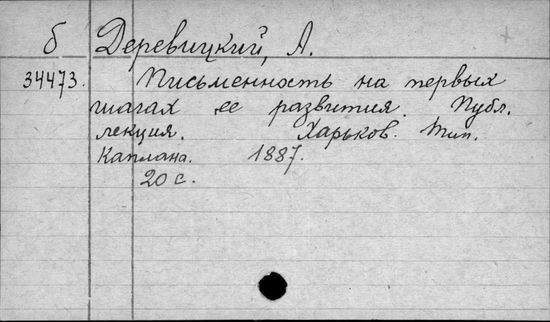 б Деревицкий, А.
34473. Письменность на первых
шагах ее развития. Публ.
лекция. Харьков. Тип.
Каплана. 1887.
20 с.